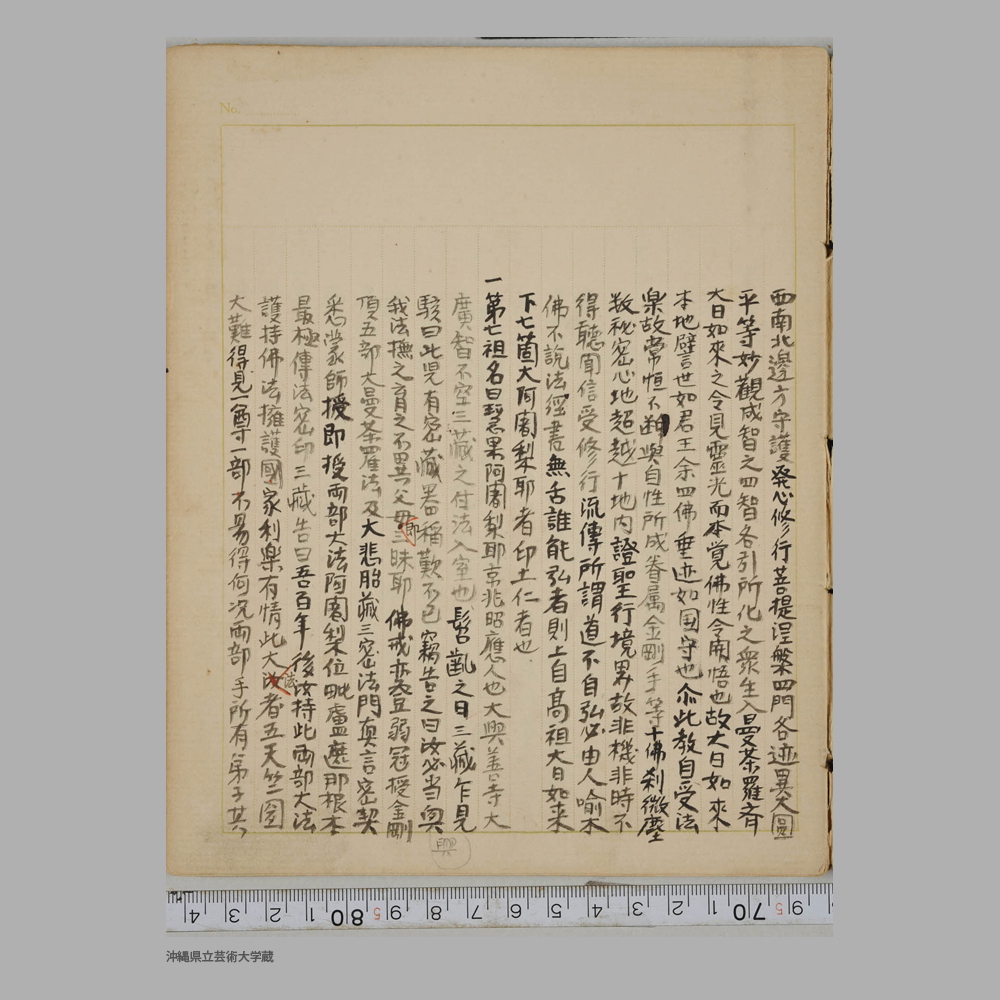 No.
西南北邊方守護発心修行菩提涅槃四門各迹異大圓
平等妙觀成智之四智各引所化之衆生入曼荼羅斉
大日如來之令見靈光而本覚佛性令開悟也故大日如來
本地譬言世如君王余四佛垂迹如国守也尒此教自受法
楽故常恒不断與自性所成眷属金剛手等十佛刹微塵
数秘密心地超越十地内證聖行境界故非機非時不
得聽聞信受修行流傳所謂道不自弘必由人喻本
佛不説法經書無舌誰能弘者則上自高祖大日如来
下七箇大阿闍梨耶者印土仁者也
一第七祖名曰慧果阿闍梨耶京兆昭應人也大興善寺大
廣智不空三蔵之付法入室也髫齔之日三藏乍見
駭曰此児有密藏器稱歎不已竊告之曰汝必當興
我法撫之育之不異父母即三昧耶佛戒亦登弱冠授金剛
頂五部大曼荼羅法及大悲胎藏三密法門真言密契
悉蒙師授即授両部大法阿闍梨位毗盧遮那根本
最極傳法密印三藏告曰吾百年後汝持此両部大法
護持佛法擁護國家利楽有情此大法者五天竺国
大難得見一尊一部不易得何况両部乎所有弟子其
興
沖縄県立芸術大学蔵
4 3 2 1 80 9 8 7 6 5 4 3 2 1 70 9